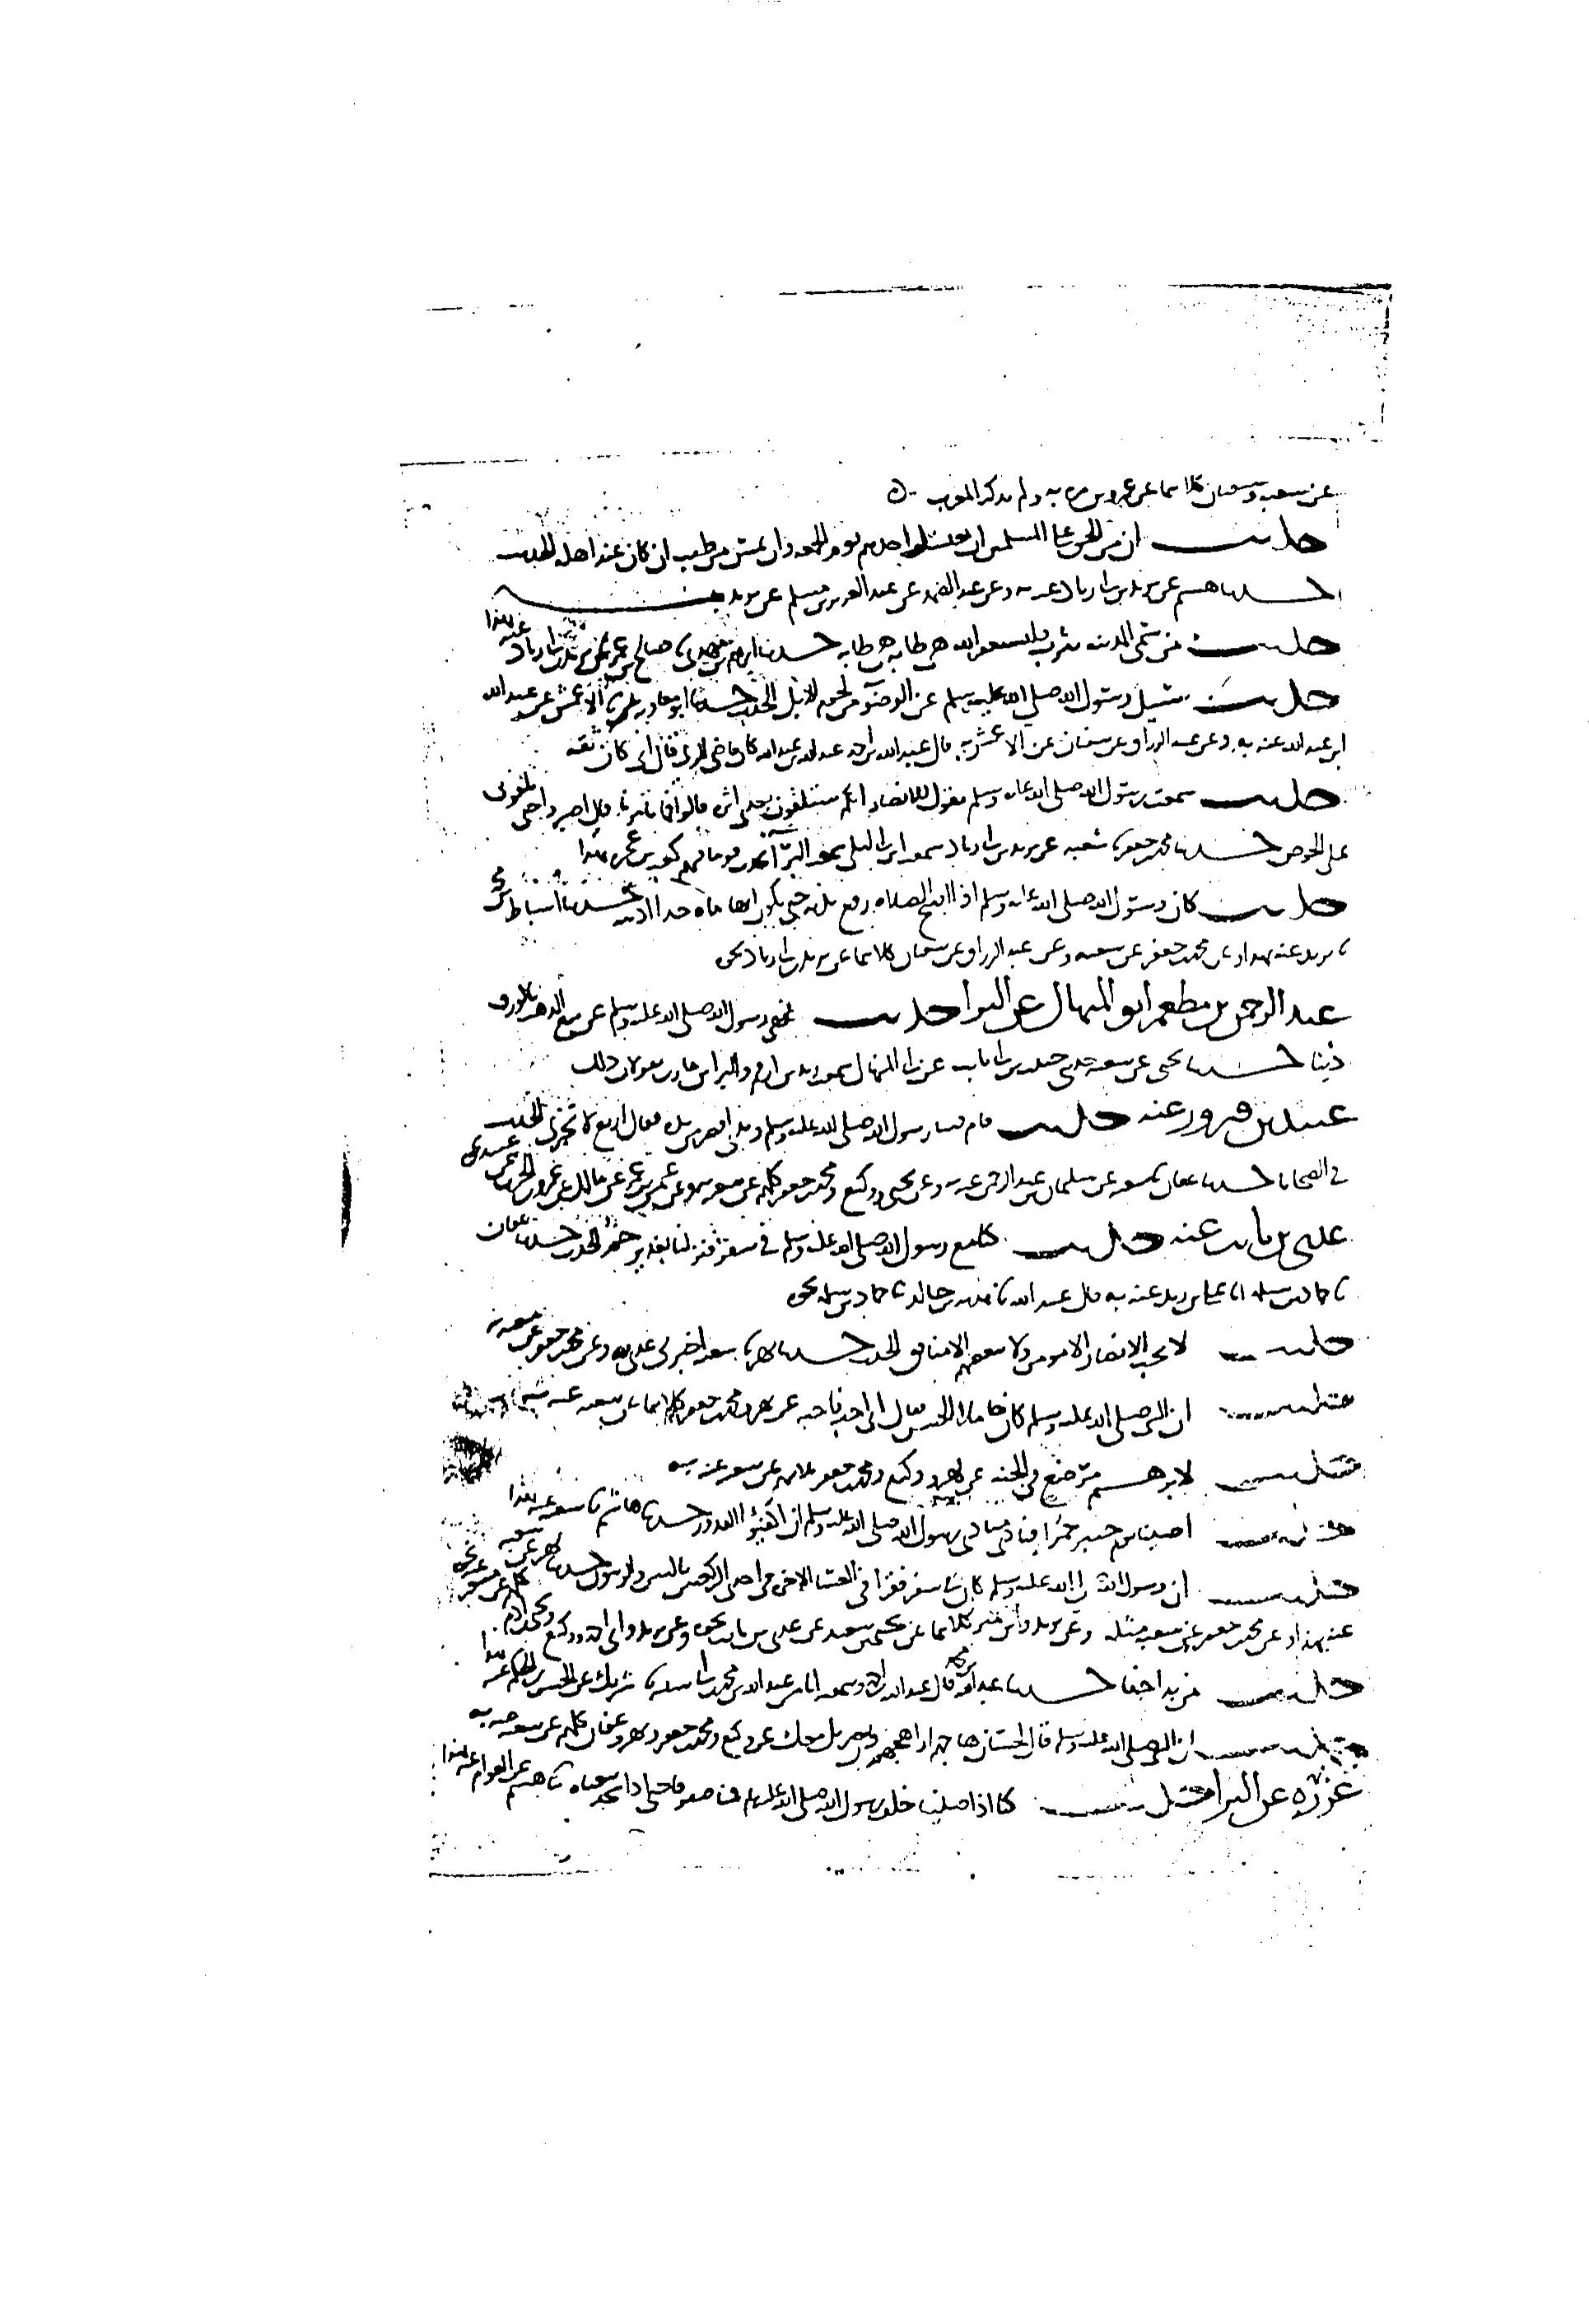 عن شعبه وسفيان كلاهما عن عمرو بن مره به ولم يذكر المغرب
حديث ان من الحق على المسلمين ان يغتسل احدهم يوم الجمعه وان يمس من طيب ان كان عند اهله الحديث
حدثنا هشيم عن يزيد بن ابى زياد عنه به وعن عبد الصمد عن عبد العزيز بن مسلم عن يزيد
حديث من سمى المدينه يثرب فليستغفر الله هى طابه هى طابه حدثنا ابراهيم بن مهدى ثنا صالح بن عمر عن يزيد بن ابى زياد عنه بهذا
حديث سئل رسول الله صلى الله عليه وسلم عن الوضوء من لحوم الابل الحديث حدثنا ابو معاويه ثنا الاعمش عن عبد الله
ابن عبد الله عنه به وعن عبد الرزاق عن سفيان عن الاعمش به قال عبد الله بن احمد عبد الله بن عبد الله كان قاضى الرى قال ابى كان ثقه
حديث سمعت رسول الله صلى الله عليه وسلم يقول للانصار انكم ستلقون بعدى اثره قالوا فما تامرنا قال اصبروا حتى تلقونى
على الحوض حدثنا محمد بن جعفر ثنا شعبه عن يزيد بن ابى زياد سمع ابن ابى ليلى سمع البرا يحدث قوما فيهم كعب بن عجره بهذا
حديث كان رسول الله صلى الله عليه وسلم اذا افتتح الصلاه رفع يديه حتى يكون ابهاماه حذا اذنيه حدثنا اسباط بن محمد
ثنا يزيد عنه بهذا وعن محمد بن جعفر عن شعبه وعن عبد الرزاق عن سفيان كلاهما عن يزيد بن ابى زياد نحوه
عبد الرحمن بن مطعم ابو المنهال عن البرا حديث نهى رسول الله صلى الله عليه وسلم عن بيع الذهب بالورق
دينا حدثنا يحيى عن شعبه حدثنى حبيب بن ابى ثابت عن ابى المنهال سمع زيد بن ارقم والبرا بن عازب يقولان ذلك
عبيد بن فيروز عنه حديث قام فينا رسول الله صلى الله عليه وسلم ويدى اقصر من يده فقال اربع لا تجزى الحديث
فى الضحايا حدثنا عفان ثنا شعبه عن سليمان بن عبد الرحمن عنه به وعن يحيى ووكيع ومحمد بن جعفر كلهم عن شعبه به وعن عثمان بن عمر عن مالك عن عمرو بن الحارث عن عبيد نحوه
عدى بن ثابت عنه حديث كنا مع رسول الله صلى الله عليه وسلم فى سفر فنزلنا بغدير خم الحديث حدثنا عفان
ثنا حماد بن سلمه انا على بن زيد عنه به قال عبد الله ثنا هدبه بن خالد ثنا حماد بن سلمه نحوه
حديث لا يحب الانصار الا مومن ولا يبغضهم الا منافق الحديث حدثنا بهز ثنا شعبه اخبرنى عدى به وعن محمد بن جعفر عن شعبه به
حديث ان النبى صلى الله عليه وسلم كان حاملا الحسن فقال انى احبه فاحبه عن بهز ومحمد بن جعفر كلاهما عن شعبه عنه
حديث لابرهيم مرضع فى الجنه عن بهز ووكيع ومحمد بن جعفر ثلاثتهم عن شعبه عنه به
حديث اصبنا يوم خيبر حمرا فنادى منادى رسول الله صلى الله عليه وسلم ان اكفئوا القدور حدثنا هاشم ثنا شعبه عنه بهذا
حديث ان رسول الله صلى الله عليه وسلم كان فى سفر فقرا فى العشا الاخره فى احدى الركعتين بالتين والزيتون حدثنا بهز عن شعبه
عنه بهذا وعن محمد بن جعفر عن شعبه مثله وعن يزيد وابن نمير كلاهما عن يحيى بن سعيد عن عدى بن ثابت نحوه
حديث من بدا جفا حدثنا عبد الله بن محمد قال عبد الله وسمعته انا من عبد الله بن محمد بن ابى شيبه ثنا شريك عن الحسن بن الحكم عنه بهذا
حديث ان النبى صلى الله عليه وسلم قال لحسان هاجهم او اهجهم وجبريل معك عن وكيع ومحمد بن جعفر وبهز وعفان كلهم عن شعبه عنه به
عزره عن البرا حديث كنا اذا صلينا خلف رسول الله صلى الله عليه وسلم ثنا هشيم عن العوام عنه بهذا